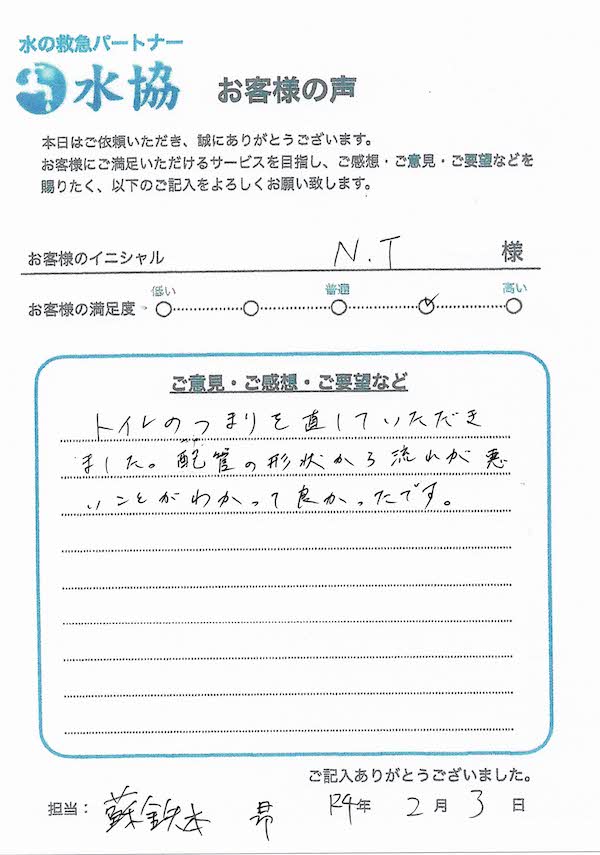 水の救急パートナー
水協 お客様の声
本日はご依頼いただき、誠にありがとうございます。
お客様にご満足いただけるサービスを目指し、ご感想・ご意見・ご要望などを
賜りたく、以下のご記入をよろしくお願い致します。
お客様のイニシャル N.T 様
低い 普通 高い
お客様の満足度
ご意見・ご感想・ご要望など
トイレのつまりを直していただき
ました。配管の形状から流れが悪
いことがわかって良かったです。
ご記入ありがとうございました。
担当: 蘇鉄本 昴 R4年 2月 3日